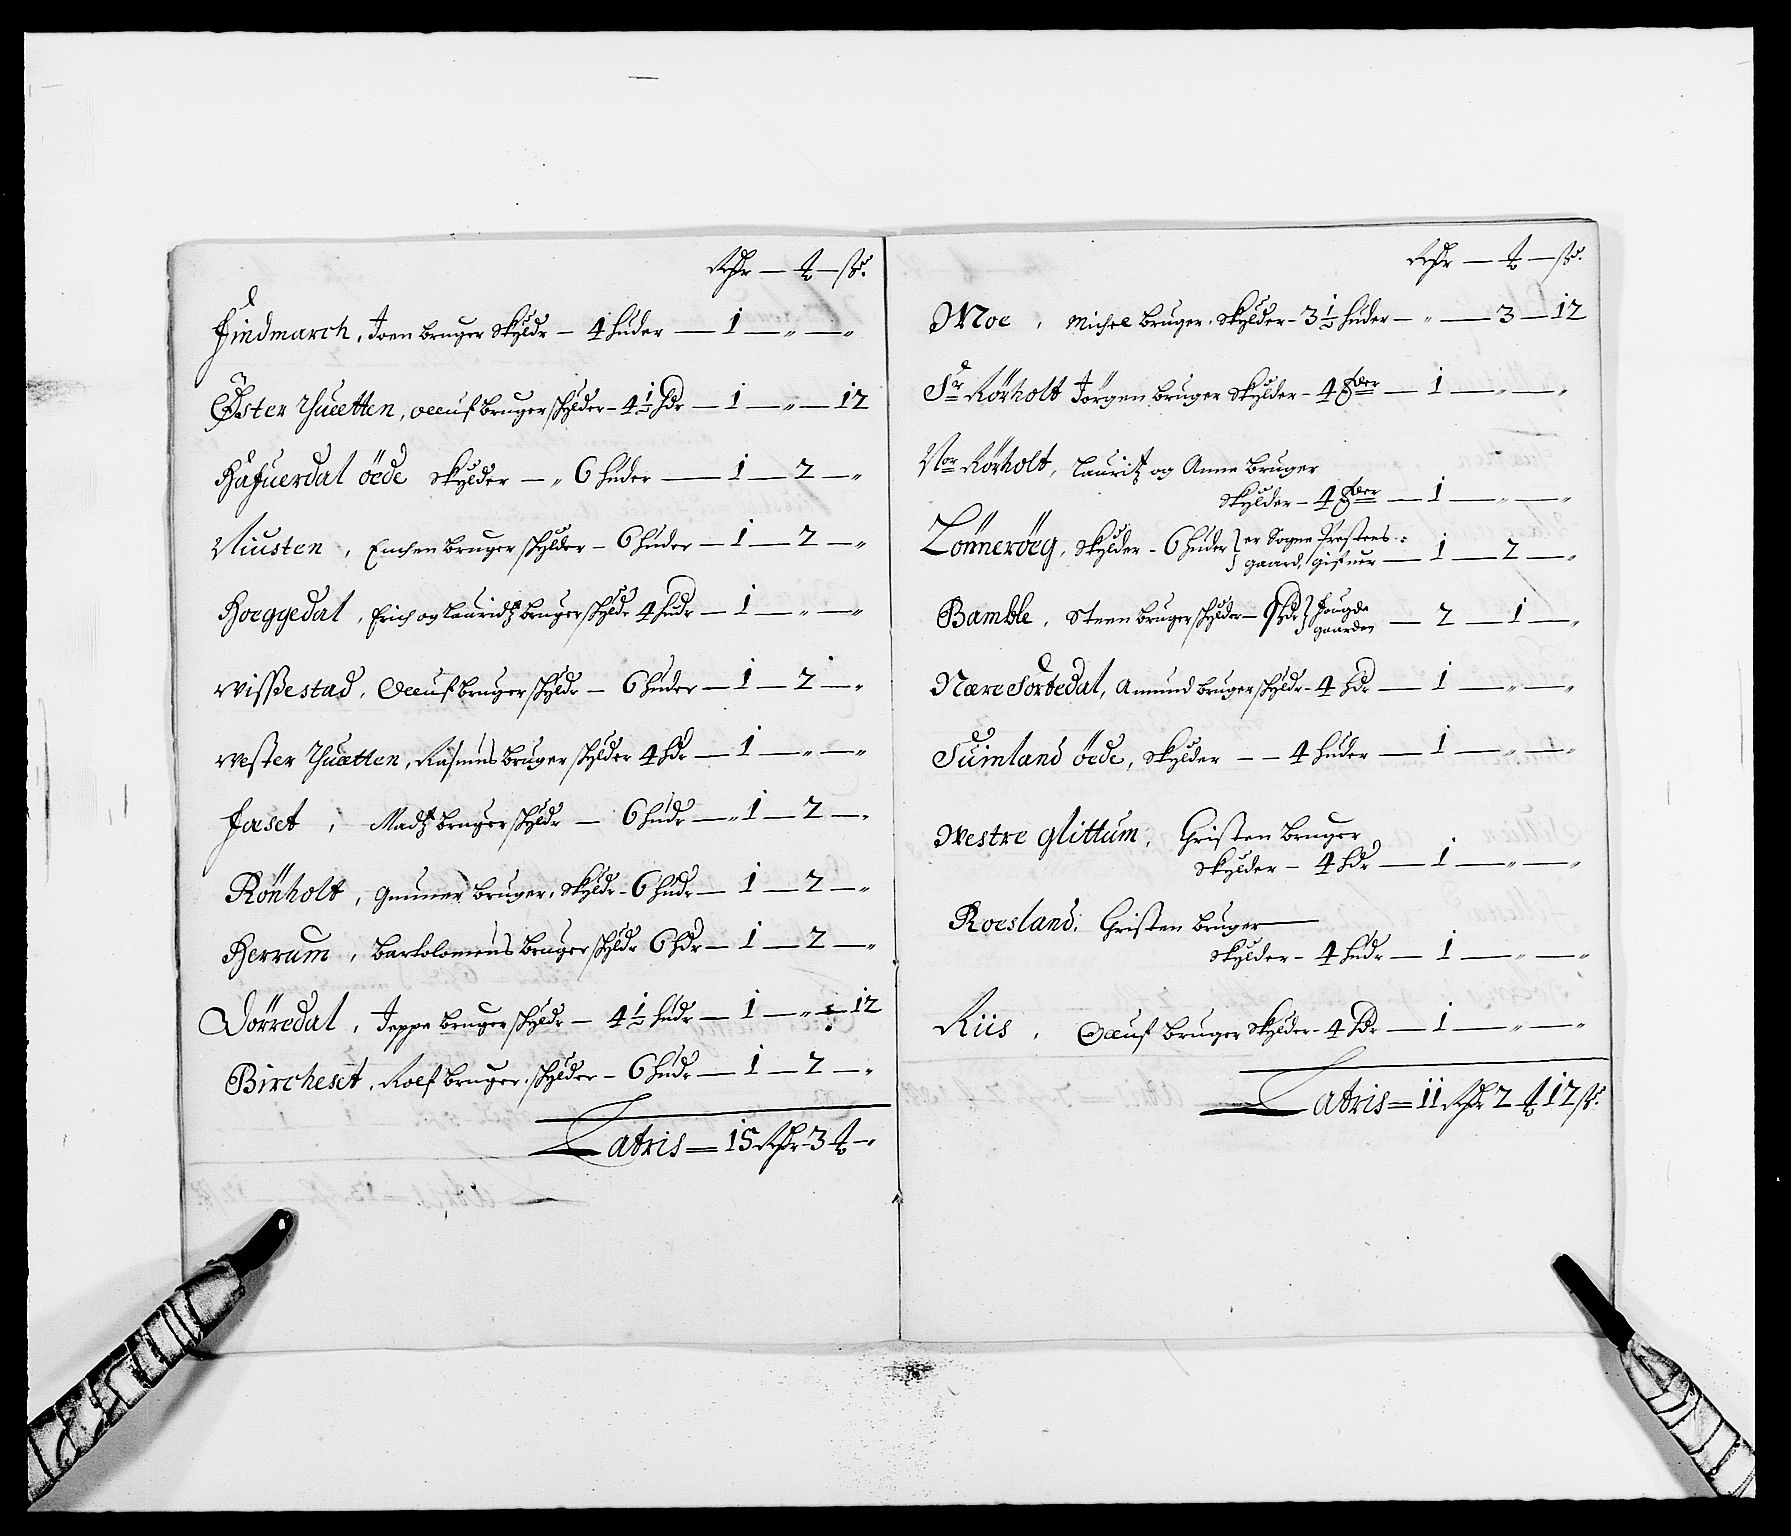 Rdr — ℔ — ß.
Findmarch, Joen bruger Skyldr — 4 huder — 1 — „ — „
Öster Huetten, oluf bruger skylder – 4½ hdr — 1 — „ — 12
Hafuerdal öde skylder — „ 6 huder — 1 — 2 — „
Niusten, Enchen bruger skylder – 6 huder — 1 — 2 — „
Hoeggedal, Erich og Lauridtz bruger skyldr 4 hudr — 1 — „ — „
wissestad, Oluf bruger skyldr — 6 huder — 1 — 2 — „
wester Huetten, Rasmus bruger skylder 4 hdr — 1 — „ — „
Foeset, Madtz bruger skyldr — 6 hudr — „ 1 — 2 — „
Rönholt, Gunner bruger, skyldr – 6 hudr — 1 — 2 — „
Herrum, Bartolomeus bruger skyldr 6 hdr — 1 — 2 — „
Dörredal, Jeppe bruger skyldr — 4½ hudr — 1 — „ — 12
Bircheset, Rolf bruger, skylder – 6 hudr — 1 — 2 — „
Latris = 15 Rdr – 3 ℔ — „
Rdr — ℔ — ß.
Moe, Michel bruger, skylder – 3½ huder — „ — 3 — 12
Sr Rörholt Jörgen bruger skylder – 4 — 1 — „ — „
Nor Rörholt, Lauritz og Anne bruger
skylder – 4 — 1 — „ — „
Lönneröeg, skylder – 6 huder } er Sogne Prestens
gaard, gifuer — 1 — 2 — „
Bamble, Steen bruger skylder — 9 hdr } fougde
gaarden — 2 — 1 — „
Nære Sortedal, Amund bruger skyldr – 4 hdr — 1 — „ — „
Suinland öde, skylder — — 4 huder — 1 — „ — „
Westre glittum, Christen bruger
skylder – 4 hdr — 1 — „ — „
Roesland, Christen bruger —
skylder – 4 hudr — 1 — „ — „
Riis, Oluf bruger skylder – 4 hdr — 1 — „ — „
Latris = 11 Rdr 2 ℔ 12 ß.